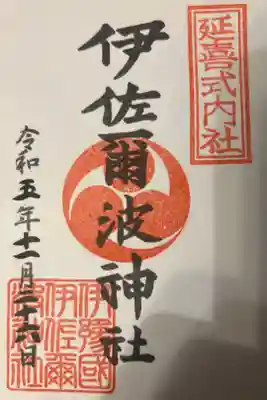 延喜式内社
伊佐爾波神社
令和五年十一月二十六日
伊豫國
伊佐爾
波神社